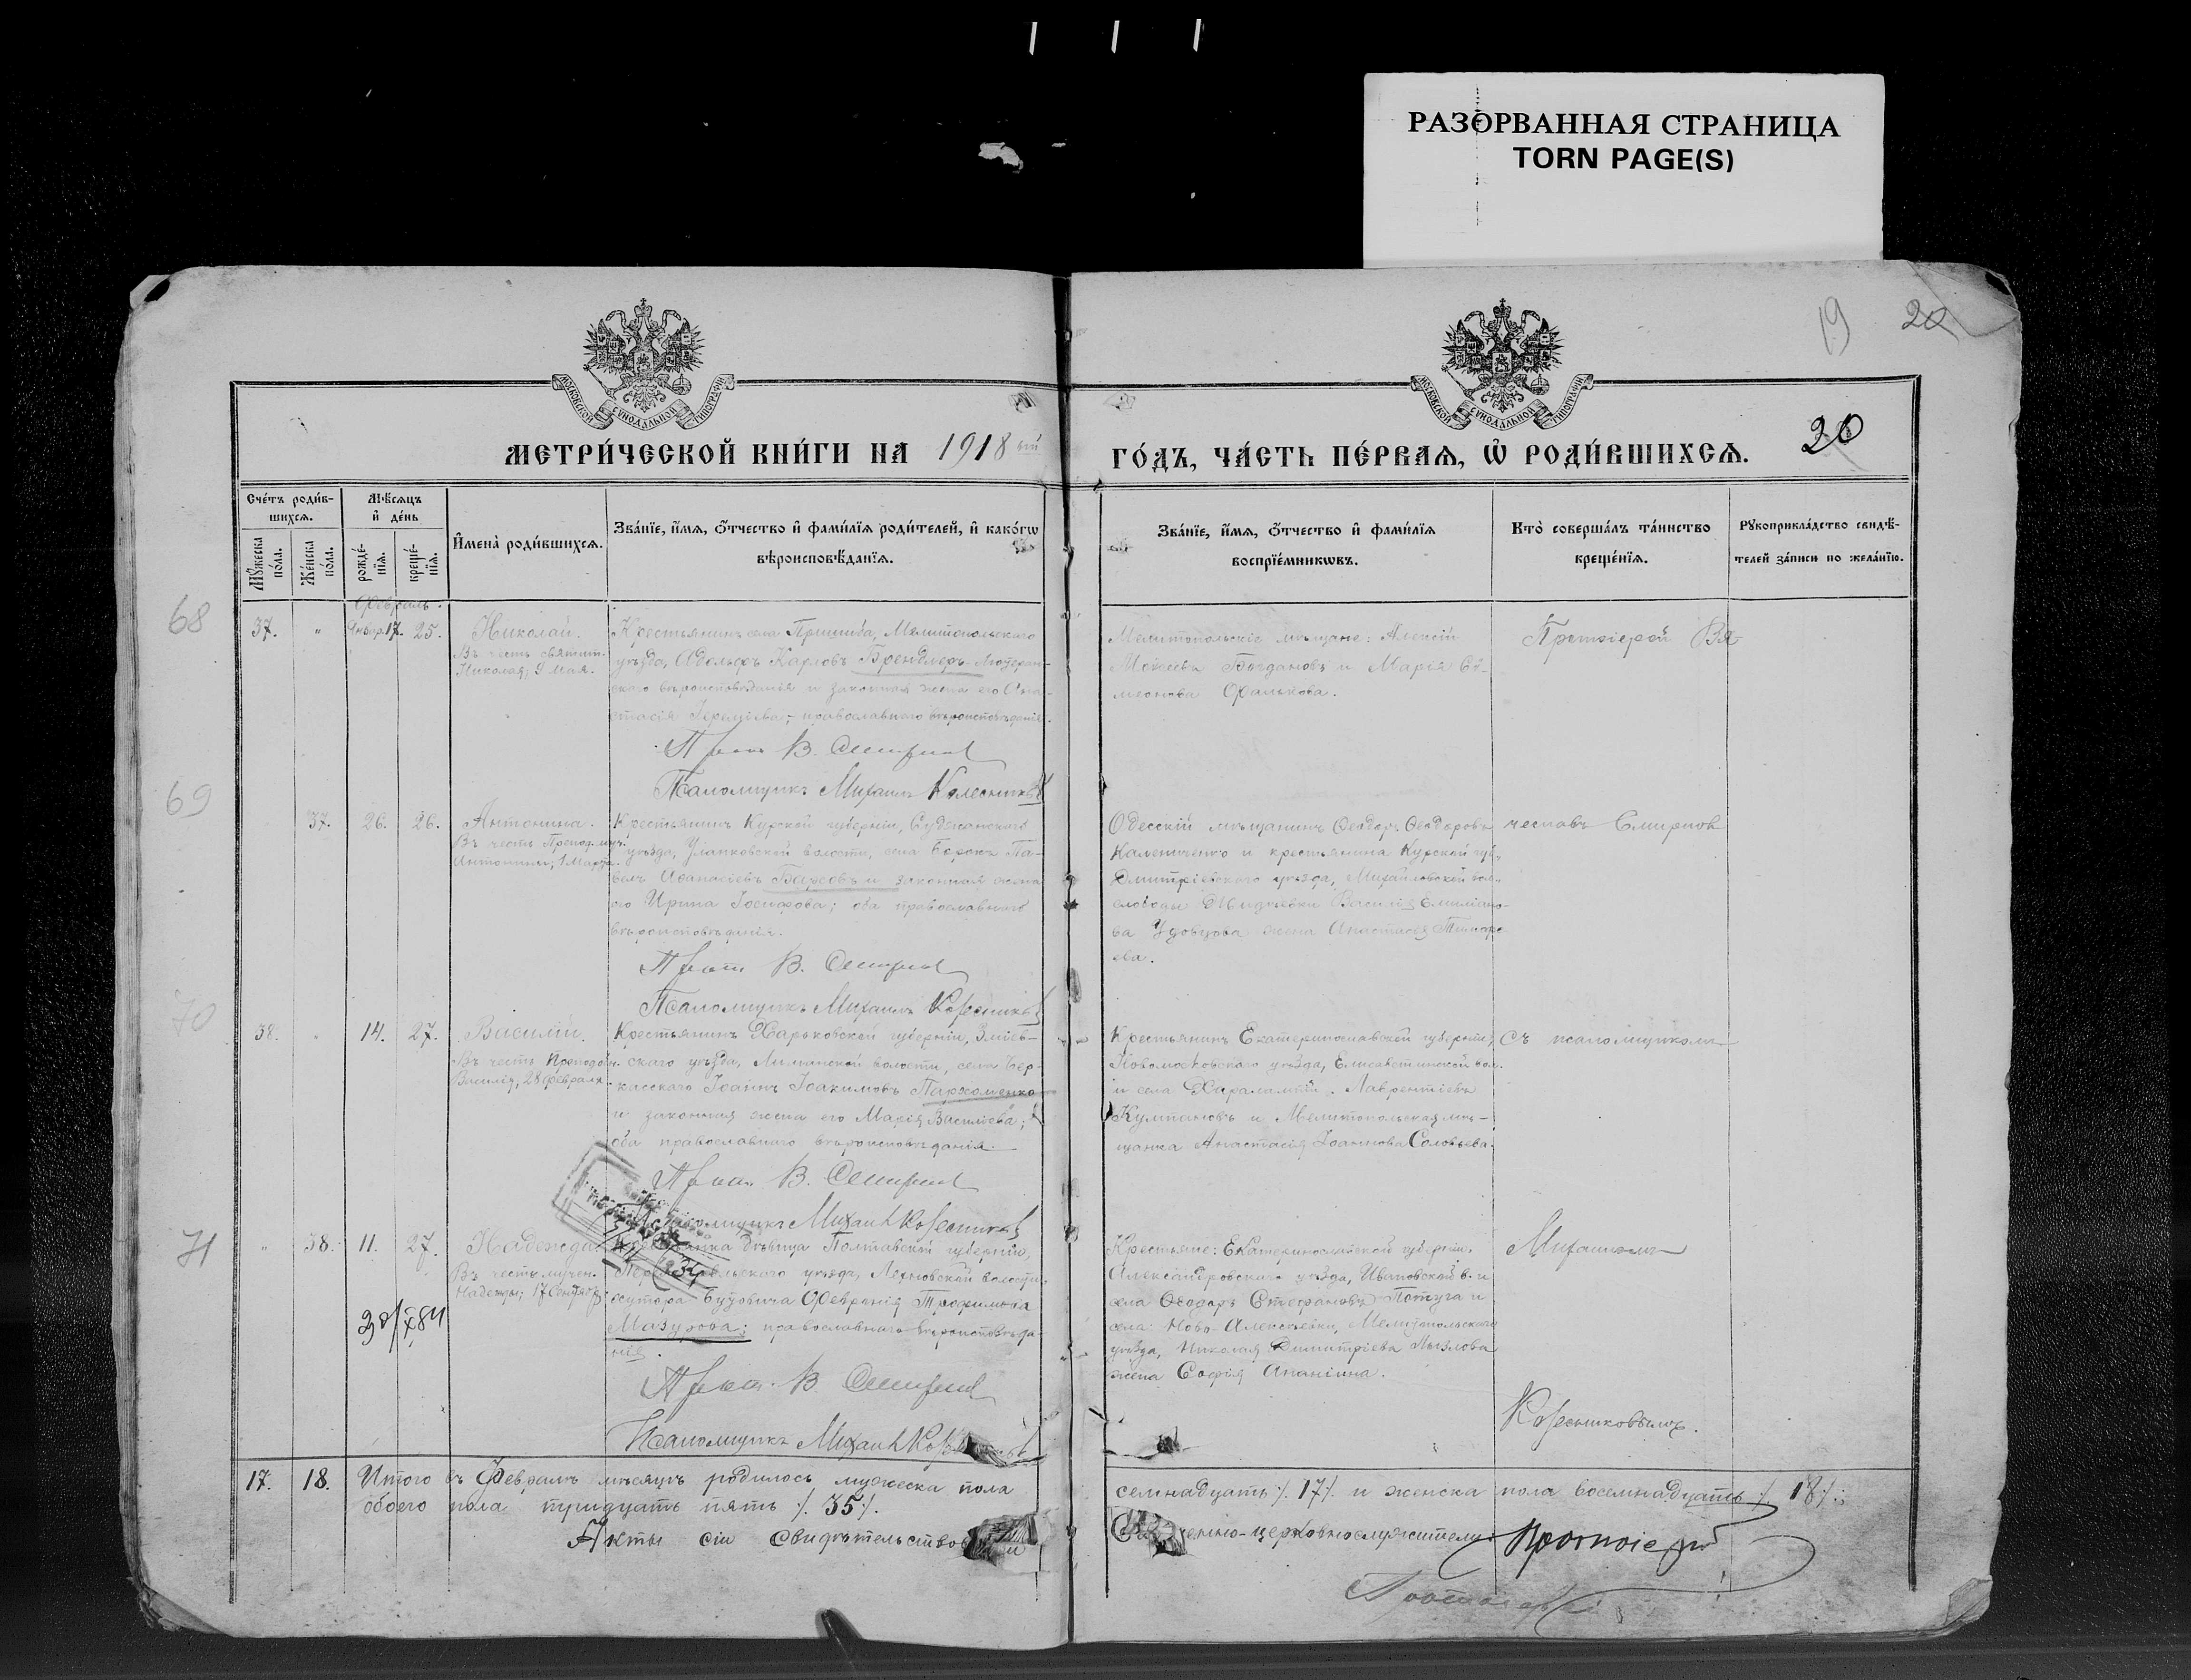 РАЗОРВАННАЯ СТРАНИЦА
TORN PAGE(S)
19
20
МОСКОВСКОЙ СѴНОДАЛЬНОЙ ТИПОГРАФІИ
МОСКОВСКОЙ СѴНОДАЛЬНОЙ ТИПОГРАФІИ
МЕТРИ́ЧЕСКОЙ КНИ́ГИ НА 1918 ый
ГО́ДЪ, ЧА́СТЬ ПЕ́РВАѦ, Ѡ РОДИ́ВШИХСѦ.
20
Сче́тъ роди́в-
шихсѧ.
Мꙋ́жеска по́ла.
Же́нска по́ла.
Мѣ́сѧцъ
и҆ де́нь
рожде́-
нїѧ.
креще́-
нїѧ.
И҆мена̀ роди́вшихсѧ.
Зва́нїе, и҆́мѧ, ѻ҆́тчество и҆ фами́лїѧ роди́телей, и҆ како́гѡ
вѣроисповѣ́данїѧ.
Зва́нїе, и҆́мѧ, ѻ҆́тчество и҆ фами́лїѧ
воспрїе́мникѡвъ.
Кто̀ соверша́лъ та́инство
креще́нїѧ.
Рꙋкоприкла́дство свидѣ́-
телей за́писи по жела́нїю.
68
Февраль.
37. " Январ. 17. 25.
Николай.
Въ честь святит.
Николая; 9 Мая.
Крестьянинъ села Пришиба, Мелитопольскаго
уѣзда, Адольфъ Карловъ Брендлеръ - лютеран-
скаго вѣроисповѣданія и законная жена его Ана-
стасія Іереміева; - православнаго вѣроисповѣданія.
Прот. В. Смирнов
Псаломщикъ Михаилъ Колесников
Мелитопольскіе мѣщане: Алексій
Моисеевъ Богдановъ и Марія Си-
меонова Фалькова.
Протоіерей Вя-
69
37. 26. 26.
Антонина.
Въ честь Преподмуч.
Антонины; 1 Марта.
Крестьянинъ Курской губерніи, Суджанскаго
уѣзда, Уланковской волости, села Борокъ Па-
велъ Аѳанасіевъ и законная жена
его Ирина Іосифова; оба православнаго
вѣроисповѣданія.
Прот. В. Смирнов
Псаломщикъ Михаилъ Колесников
Одесскій мѣщанинъ Ѳеодоръ Ѳеодоровъ
Калениченко и крестьянина Курской губ.,
Дмитріевскаго уѣзда, Михайловской вол.,
слободы Василія Емиліано-
ва жена Анастасія
ева.
чеславъ Смирнов
70
38. " 14. 27.
Василій.
Въ честь Преподобн.
Василія, 28 февраля.
Крестьянинъ Харьковской губерніи, Зміев-
скаго уѣзда, Лиманской волости, села Чер-
касскаго Іоаннъ Іоакимовъ Пархоменко
и законная жена его Марія Василіева;
оба православнаго вѣроисповѣданія.
Прот. В. Смирнов
Псаломщикъ Михаил Колесников
Крестьянинъ Екатеринославской губерніи,
Новомосковскаго уѣзда, Елисаветинской вол.
и села Харалампій Лаврентіевъ
Кулпановъ и Мелитопольская мѣ-
щанка Анастасія Іоаннова Соловьева.
Съ псаломщикомъ
71
" 38. 11. 27.
Надежда.
Въ честь мучен.
Надежды; 17 Сентября
Крестьянка дѣвица Полтавской губерніи,
уѣзда, волости,
хутора Февронія Трофимова
Мазурова; православнаго вѣроисповѣда-
нія.
Прот. В. Смирнов
Псаломщикъ Михаил
Крестьяне: Екатеринославской губерніи,
Александровскаго уѣзда, Ивановской в. и
села Ѳеодоръ Стефановъ Потуга и
села Ново-Алексѣевки, Мелитопольскаго
уѣзда, Николая Димитріева
жена Софія Ананіина.
Михаиломъ
Колесниковымъ.
17. 18. Итого въ Февралѣ мѣсяцѣ родилось мужеска пола
семнадцать /. 17 /. и женска пола восемнадцать /. 18 /.
обоего пола тридцать пять /. 35 /.
Акты сіи
церковнослужители: Протоіерей